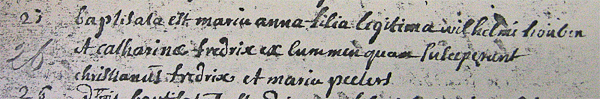 25 baptisata est maria anna filia legitima wilhelmi houben
26 et catharinæ fredrix ex lummen quam susceperunt
christianus fredrix et maria peeters
26 baptisat